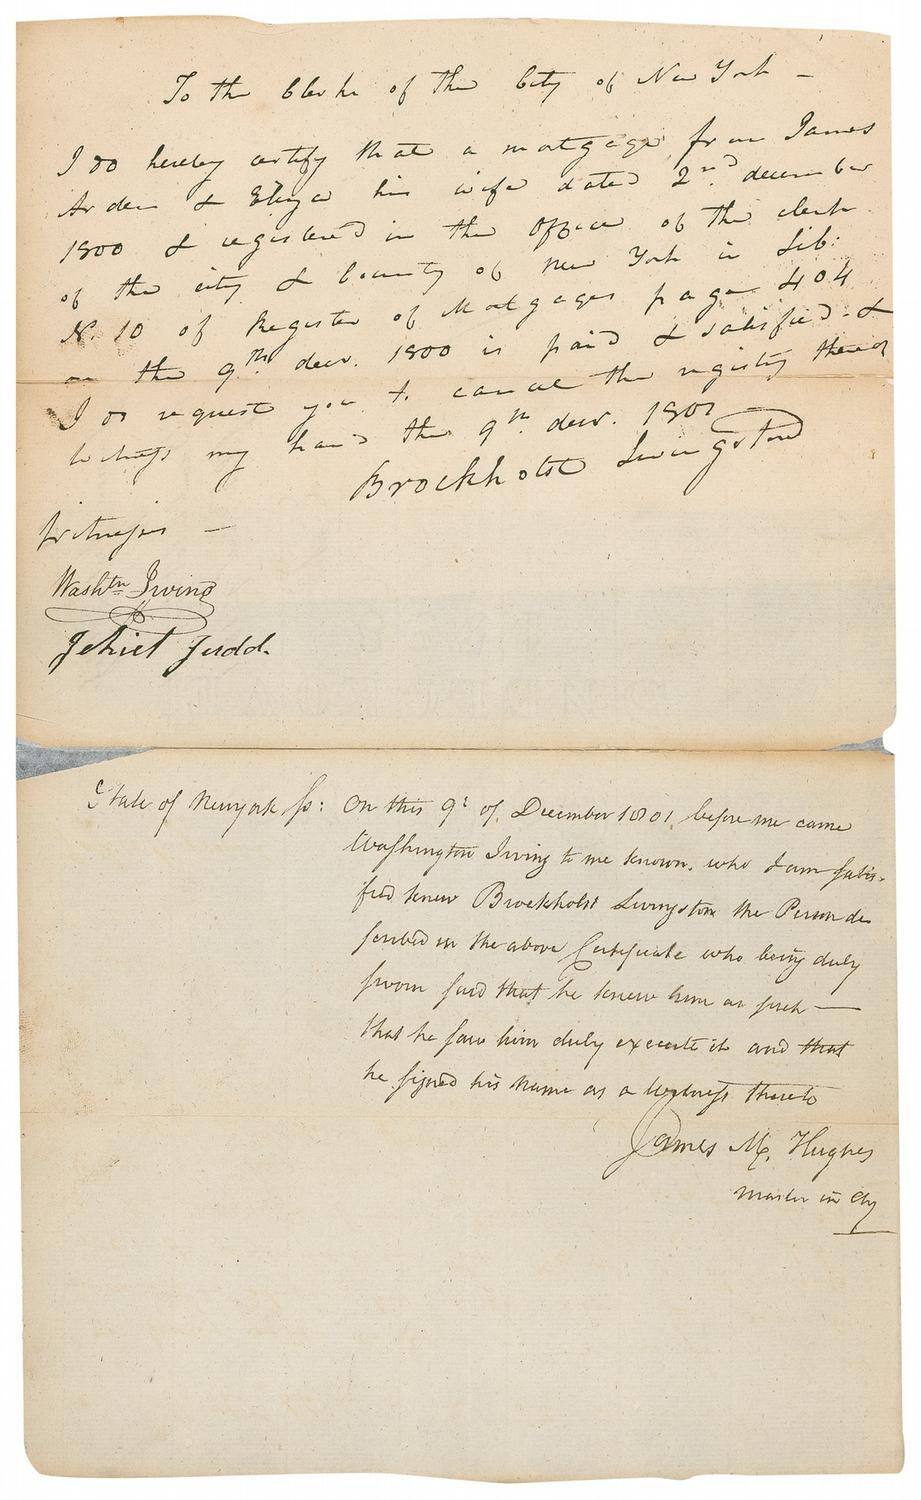 To the Clerke of the City of New York –
I do hereby certify that a mortgage from James
Arden & Eliza his wife dated 2nd. december
1800 & registered in the office of the clerk
of the city & County of New York in Lib:
N. 10 of Register of Mortgages page 404
on the 9th decr. 1800 is paid & satisfied - &
I do request you to cancel the registry thereof
witness my hand the 9th decr. 1801
Brockholst Livingston
Witnesses —
Washtn Irving
Jehiel Judd.
State of Newyork ss: On this 9t of December 1801 before me came
Washington Irving to me known, who I am satis-
fied knew Brockholst Livingston the Person de
scribed in the above Certificate who being duly
sworn said that he knew him as such —
that he saw him duly execute it and that
he signed his name as a Witness thereto
James M. Hughes
Master in Chy